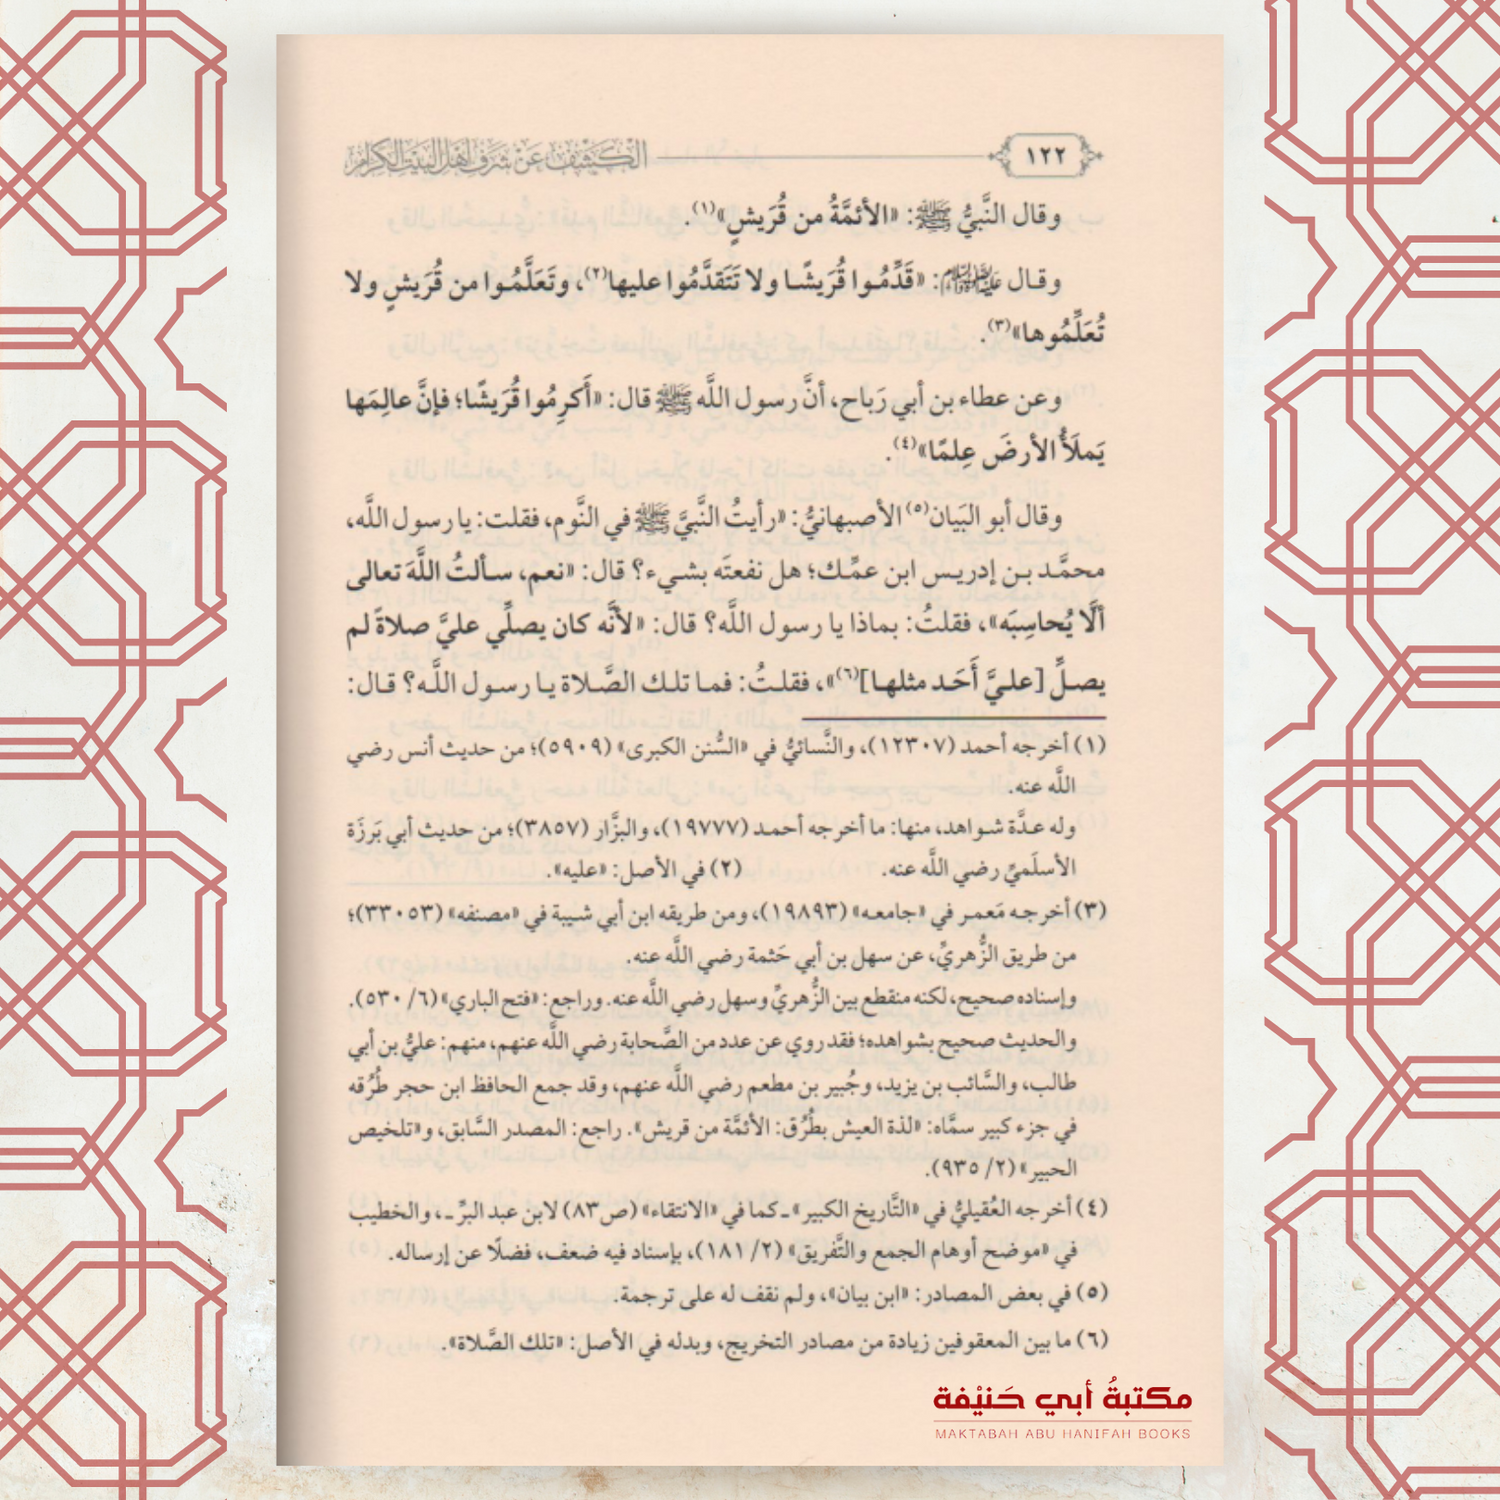 ١٢٢ الكشف عن شرف أهل البيت الكرام
وقال النَّبيُّ ﷺ: «الأئمَّةُ من قُرَيشٍ»(١).
وقال عليه الصلاة والسلام: «قَدِّمُوا قُرَيشًا ولا تَتَقدَّمُوا عليها(٢)، وتَعَلَّمُوا من قُرَيشٍ ولا
تُعَلِّمُوها»(٣).
وعن عطاء بن أبي رَباح، أنَّ رسول اللَّه ﷺ قال: «أَكرِمُوا قُرَيشًا؛ فإنَّ عالِمَها
يَملَأُ الأرضَ عِلمًا»(٤).
وقال أبو البَيان(٥) الأصبهانيُّ: «رأيتُ النَّبيَّ ﷺ في النَّوم، فقلت: يا رسول اللَّه،
محمَّد بن إدريس ابن عمِّك؛ هل نفعتَه بشيء؟ قال: «نعم، سألتُ اللَّهَ تعالى
ألَّا يُحاسِبَه»، فقلتُ: بماذا يا رسول اللَّه؟ قال: «لأنَّه كان يصلِّي عليَّ صلاةً لم
يصلِّ [عليَّ أَحَد مثلها](٦)»، فقلتُ: فما تلك الصَّلاة يا رسول اللَّه؟ قال:
(١) أخرجه أحمد (١٢٣٠٧)، والنَّسائيُّ في «السُّنن الكبرى» (٥٩٠٩)؛ من حديث أنس رضي
اللَّه عنه.
وله عدَّة شواهد، منها: ما أخرجه أحمد (١٩٧٧٧)، والبزَّار (٣٨٥٧)؛ من حديث أبي بَرزَة
الأسلَميِّ رضي اللَّه عنه. (٢) في الأصل: «عليه».
(٣) أخرجه مَعمر في «جامعه» (١٩٨٩٣)، ومن طريقه ابن أبي شيبة في «مصنفه» (٣٣٠٥٣)؛
من طريق الزُّهريِّ، عن سهل بن أبي حَثمة رضي اللَّه عنه.
وإسناده صحيح، لكنه منقطع بين الزُّهريِّ وسهل رضي اللَّه عنه. وراجع: «فتح الباري» (٦/ ٥٣٠).
والحديث صحيح بشواهده؛ فقد روي عن عدد من الصَّحابة رضي اللَّه عنهم، منهم: عليُّ بن أبي
طالب، والسَّائب بن يزيد، وجُبير بن مطعم رضي اللَّه عنهم، وقد جمع الحافظ ابن حجر طُرُقه
في جزء كبير سمَّاه: «لذة العيش بطُرُق: الأئمَّة من قريش». راجع: المصدر السَّابق، و«تلخيص
الحبير» (٢/ ٩٣٥).
(٤) أخرجه العُقيليُّ في «التَّاريخ الكبير» ـ كما في «الانتقاء» (ص٨٣) لابن عبد البرِّ ـ، والخطيب
في «موضح أوهام الجمع والتَّفريق» (٢/ ١٨١)، بإسناد فيه ضعف، فضلًا عن إرساله.
(٥) في بعض المصادر: «ابن بيان»، ولم نقف له على ترجمة.
(٦) ما بين المعقوفين زيادة من مصادر التخريج، وبدله في الأصل: «تلك الصَّلاة».
مكتبةُ أبي حَنيْفة
MAKTABAH ABU HANIFAH BOOKS